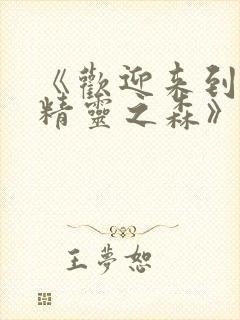 《歡迎来到
精靈之森》
王夢恕